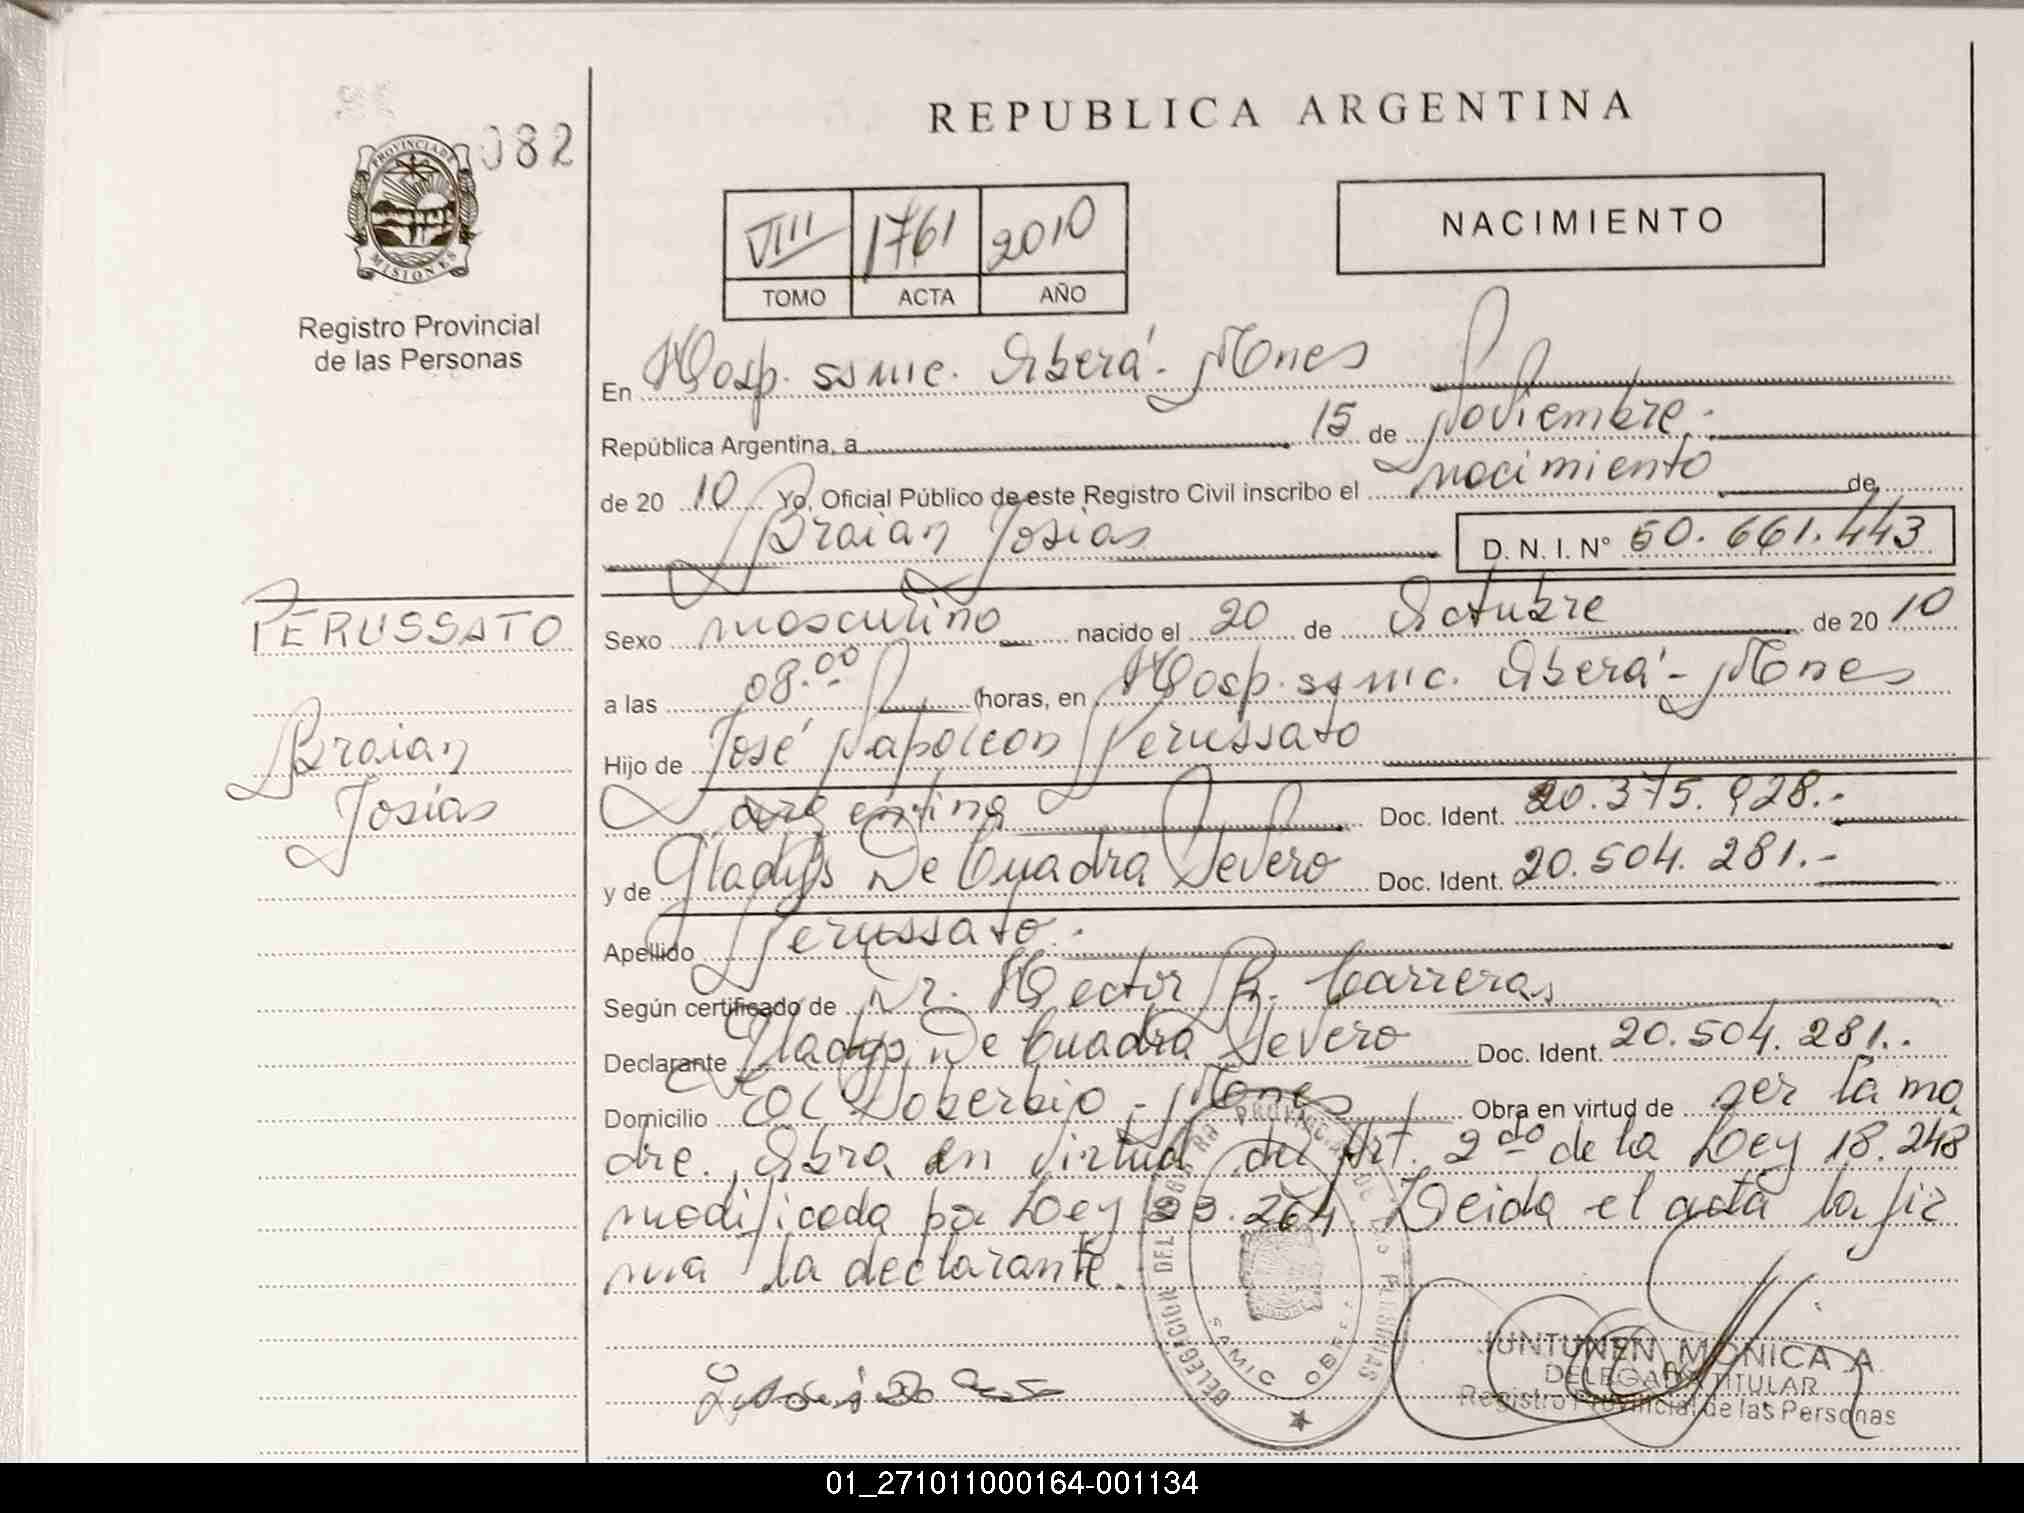 082
PROVINCIA DE
MISIONES
Registro Provincial
de las Personas
REPUBLICA ARGENTINA
VIII 1761 2010
TOMO ACTA AÑO
NACIMIENTO
En Hosp. ssmic. Oberá - Mnes
República Argentina, a 15 de Noviembre.-
de 20 10 Yo, Oficial Público de este Registro Civil inscribo el nacimiento de
Braian Josias D. N. I. N° 50.661.443
PERUSSATO
Braian
Josías
Sexo masculino nacido el 20 de Octubre de 20 10
a las 08.00 horas, en Hosp. ssmic. Oberá - Mnes
Hijo de José Napoleon Perussato
argentina Doc. Ident. 20.375.928.-
y de Gladys De Cuadra Severo Doc. Ident. 20.504.281.-
Apellido Perussato.-
Según certificado de Dr. Hector R. Carreras
Declarante Gladys De Cuadra Severo Doc. Ident. 20.504.281..
Domicilio El Soberbio - Mnes Obra en virtud de ser la ma
dre. Obra en virtud del Art. 2do de la Ley 18.248
modificada por Ley 23.264 Leida el acta la fir
ma la declarante.
JUNTUNEN MONICA A.
DELEGADA TITULAR
Registro Provincial de las Personas
01_271011000164-001134